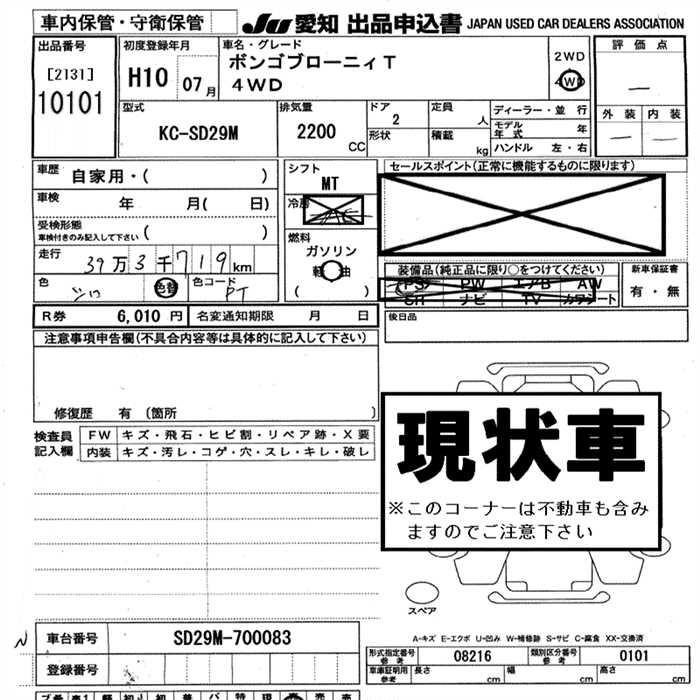 車内保管・守衛保管
JU 愛知 出品申込書 JAPAN USED CAR DEALERS ASSOCIATION
出品番号
[2131]
10101
初度登録年月
H10 07月
車名・グレード
ボンゴブローニィT
4WD
2WD
4WD
評価点
外装 内装
型式
KC-SD29M
排気量
2200
CC
ドア
2
形状
定員
人
積載
kg
ディーラー・並行
モデル年式 年
ハンドル 左・右
車歴
自家用・( )
車検
年 月( 日)
受検形態
車検付きのみ記入して下さい ( )
走行
39万3千719km
色
シロ
色替
色コード
PT
シフト
MT
冷房
燃料
ガソリン
軽油
( )
セールスポイント(正常に機能するものに限ります)
装備品(純正品に限り○をつけてください)
PS PW エアB AW
SR ナビ TV カワシート
新車保証書
有・無
後日品
R券 6,010 円 名変通知期限 月 日
注意事項申告欄(不具合内容等は具体的に記入して下さい)
修復歴 有 (箇所 )
検査員
記入欄
FW キズ・飛石・ヒビ割・リペア跡・X要
内装 キズ・汚レ・コゲ・穴・スレ・キレ・破レ
現状車
※このコーナーは不動車も含み
ますのでご注意下さい
スペア
A-キズ E-エクボ U-凹み W-補修跡 S-サビ C-腐食 XX-交換済
車台番号 SD29M-700083
登録番号
形式指定番号
参考
08216
類別区分番号
参考
0101
車庫証明用
参考
長さ cm 幅 cm 高さ cm